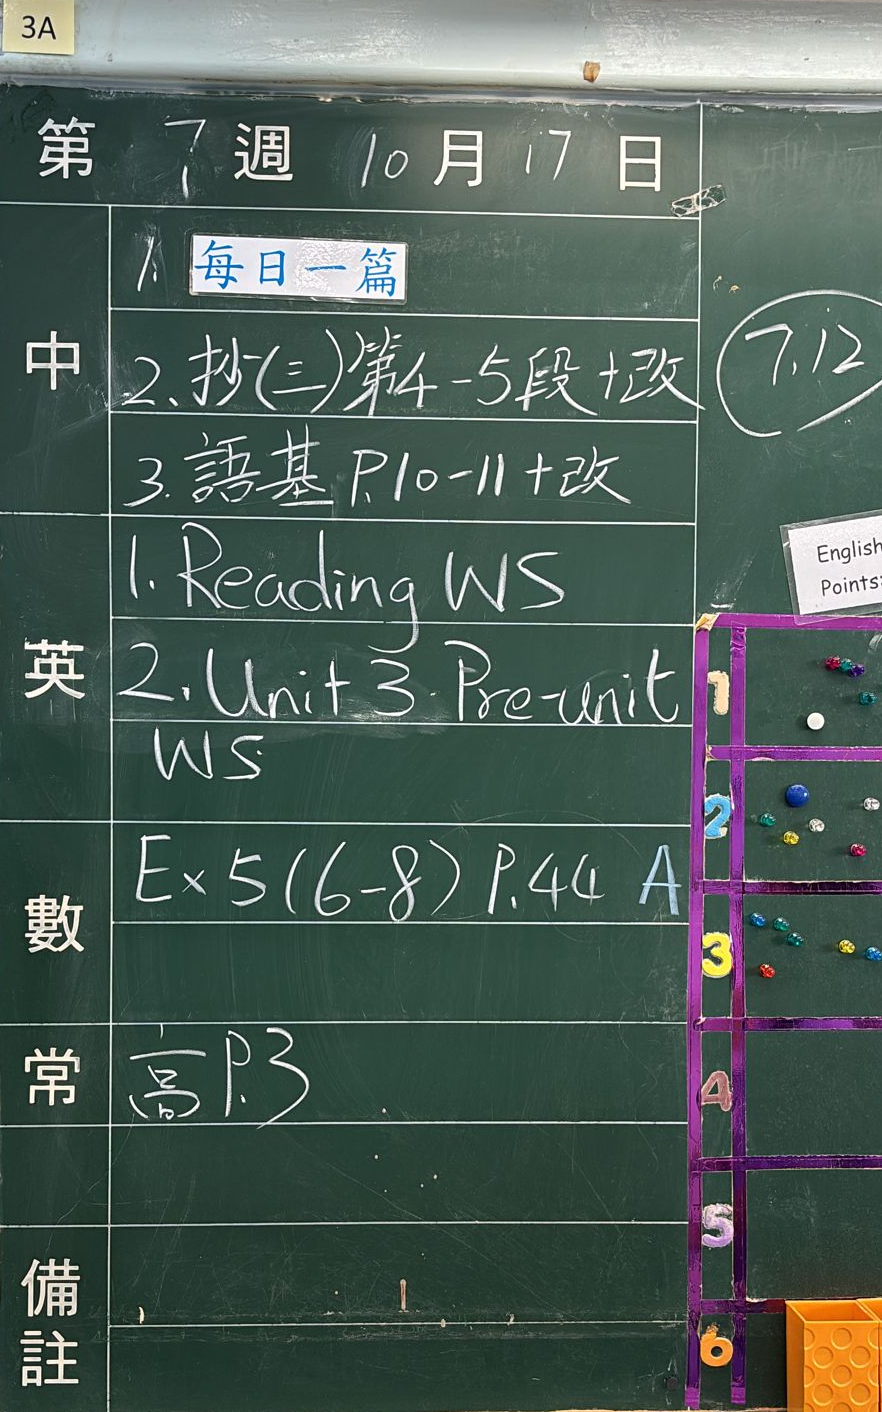 3A
第 7 週 10 月 17 日
中
1. 每日一篇
2. 抄(三)第4-5段+改
3. 語基 P.10-11+改
7.12
英
1. Reading WS
2. Unit 3 Pre-unit
WS
English
Points:
數
Ex 5(6-8) P.44 A
常
高 P.3
備註
1
2
3
4
5
6